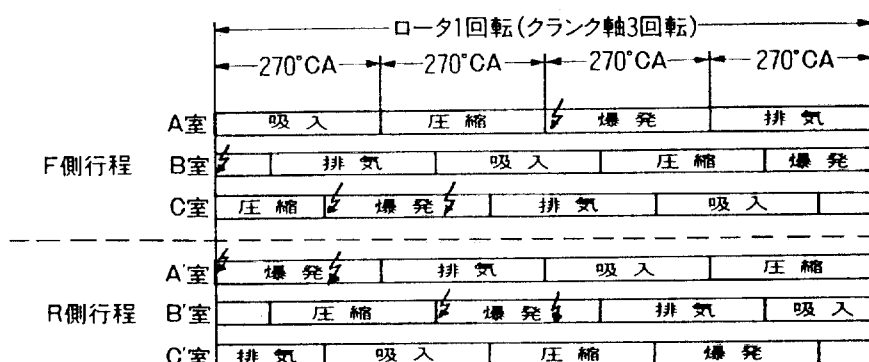 ロータ1回転(クランク軸3回転)
270°CA 270°CA 270°CA 270°CA
A室 吸入 圧縮 爆発 排気
F側行程 B室 排気 吸入 圧縮 爆発
C室 圧縮 爆発 排気 吸入
A'室 爆発 排気 吸入 圧縮
R側行程 B'室 圧縮 爆発 排気 吸入
C'室 排気 吸入 圧縮 爆発